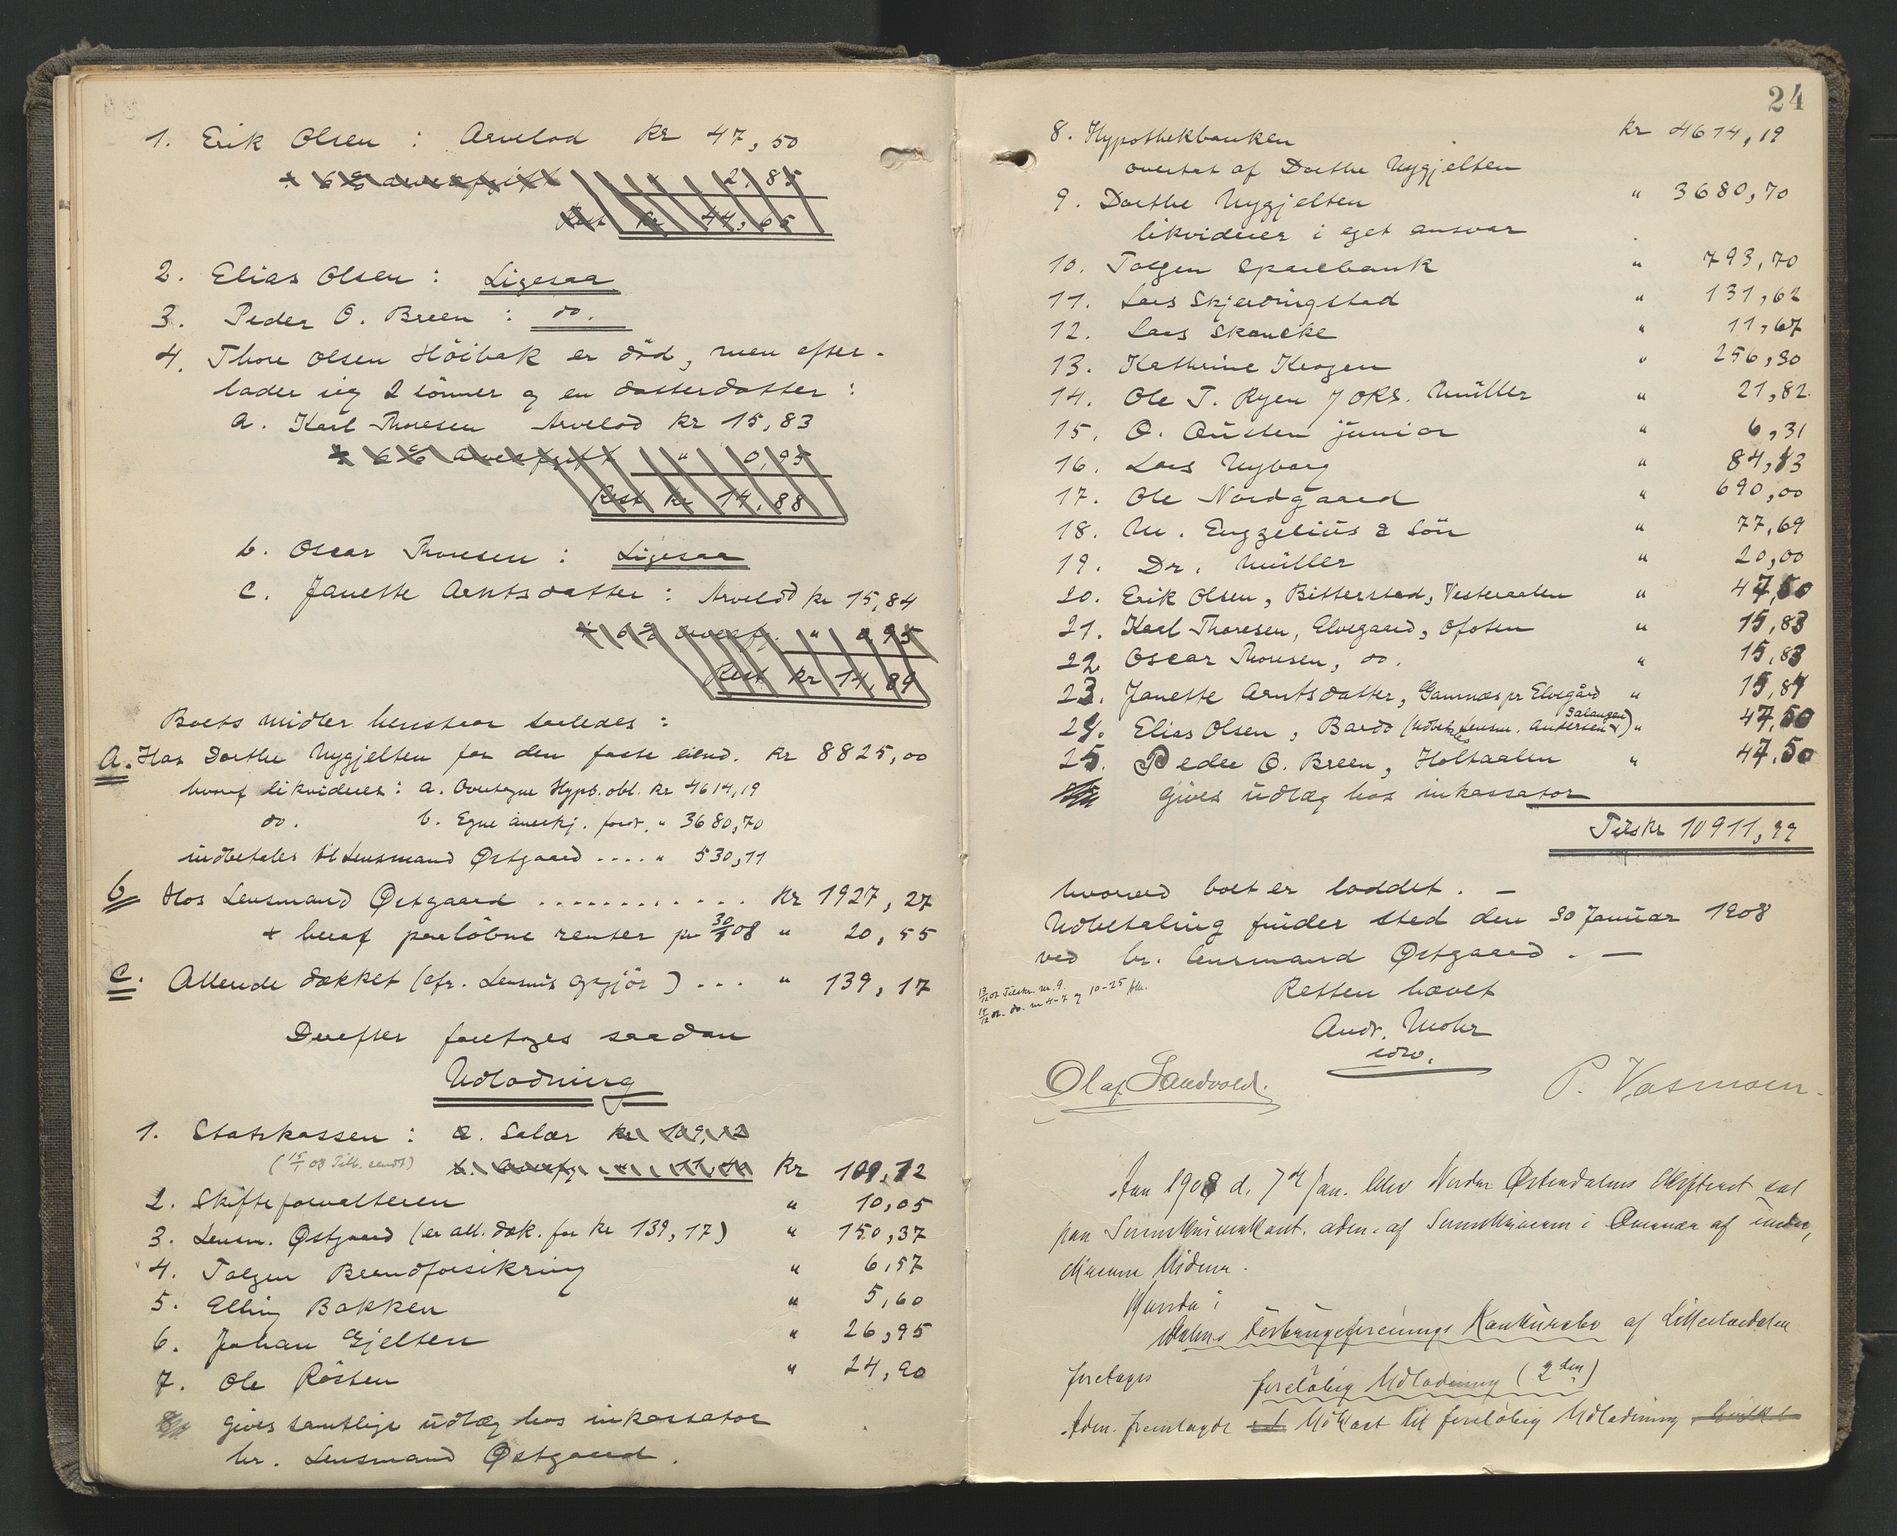 1. Erik Olsen : Arvelod kr 47,50
÷ 6 % arveafgift " 2,85
Rest kr 44,65
2. Elias Olsen : Ligesaa
3. Peder O. Breen : do.
4. Thore Olsen Höibak er död, men efter-
lader sig 2 sönner og en datterdatter :
a. Karl Thoresen Arvelod kr 15,83
÷ 6 % arveafgift " 0,95
Rest kr 14,88
b. Oscar Thoresen : Ligesaa
c. Janette Arntsdatter : Arvelod kr 15,84
÷ 6 % arveaf. " 0,95
Rest kr 14,89
Boets midler henstaar saaledes :
A. Hos Dorthe Nygjelten for den faste eiend. kr 8825,00
hvoraf likvideres : a. Overtagne Hypb. obl. kr 4614,19
do. b. Egne anerkj. fordr. " 3680,70
indbetales til Lensmand Østgaard .... " 530,11
b Hos Lensmand Østgaard ............ kr 1927,27
+ heraf paaløbne renter pr 30/1 08 " 20,55
c. Allerede dækket (cfr. Lensm's opgjör) ... " 139,17
Derefter foretoges saadan
Udlodning
1. Statskassen : a. Salær kr 109,12
(15/1 08 Tilb. sendt) kr 109,12
2. Skifteforvalteren " 10,05
3. Lensm. Østgaard (er all. dæk. for kr 139,17) " 150,37
4. Tolgen Brandforsikring " 6,57
5. Elling Bakken " 5,60
6. Johan Gjelten " 26,95
7. Ole Rösten " 24,90
gives samtlige udlæg hos inkassator
hr. Lensmand Østgaard.
24
8. Hypothekbanken kr 4614,19
overtat af Dorthe Nygjelten
9. Dorthe Nygjelten " 3680,70
likviderer i eget ansvar
10. Tolgen Sparebank " 793,70
11. Lars Skjerdingstad " 131,62
12. Lars Skancke " 11,67
13. Kathrine Krogen " 256,30
14. Ole T. Ryen / ORS. Müller " 21,82
15. O. Austen junior " 6,31
16. Lars Nyborg " 84,13
17. Ole Nordgaard " 690,00
18. M. Engzelius & Sön " 77,69
19. Dr. Müller " 20,00
20. Erik Olsen, Bitterstad, Vesteraalen " 47,50
21. Karl Thoresen, Elvegaard, Ofoten " 15,83
22. Oscar Thoresen, do. " 15,83
23. Janette Arntsdatter, Gamnæs pr Elvegård " 15,84
24. Elias Olsen, Bardo (Udbet. Lensm. Andersen Salangen) " 47,50
25. Peder O. Breen, Holtaalen " 47,50
gives udlæg hos inkassator
Tils kr 10911,99
hvorved boet er loddet. —
Udbetaling finder sted den 30 Januar 1908
ved hr. lensmand Østgaard. —
19/12 07 Tilskr. nr. 9.
19/12 07. do. nr 4-7 og 10-25
Retten hævet
Andr. Mohr
edw.
Olaf Sandvold. P. Vasmoen.
Aar 1908 d. 7de Jan. blev Nordre Østerdalens Skifteret sat
paa Sorenskriverkont. adm. af Sorenskriveren i Overvær af under-
skrevne Vidner.
Hvorda :
Dalens Forbrugsforenings Konkursbo af Lilleelvedalen
foretages foreløbig Udlodning (2den)
Adm. fremlagde Udkast til foreløbig Udlodning